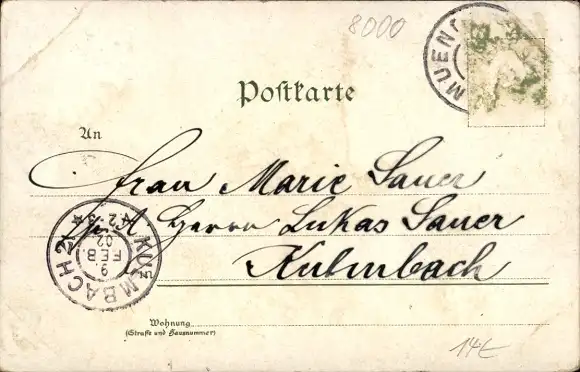 8000
MUENC
Postkarte
An
Frau Marie Sauer
Herrn Lukas Sauer
Kulmbach
KULMBACH 2
9.
FEB.
02
Wohnung
(Straße und Hausnummer)
14E